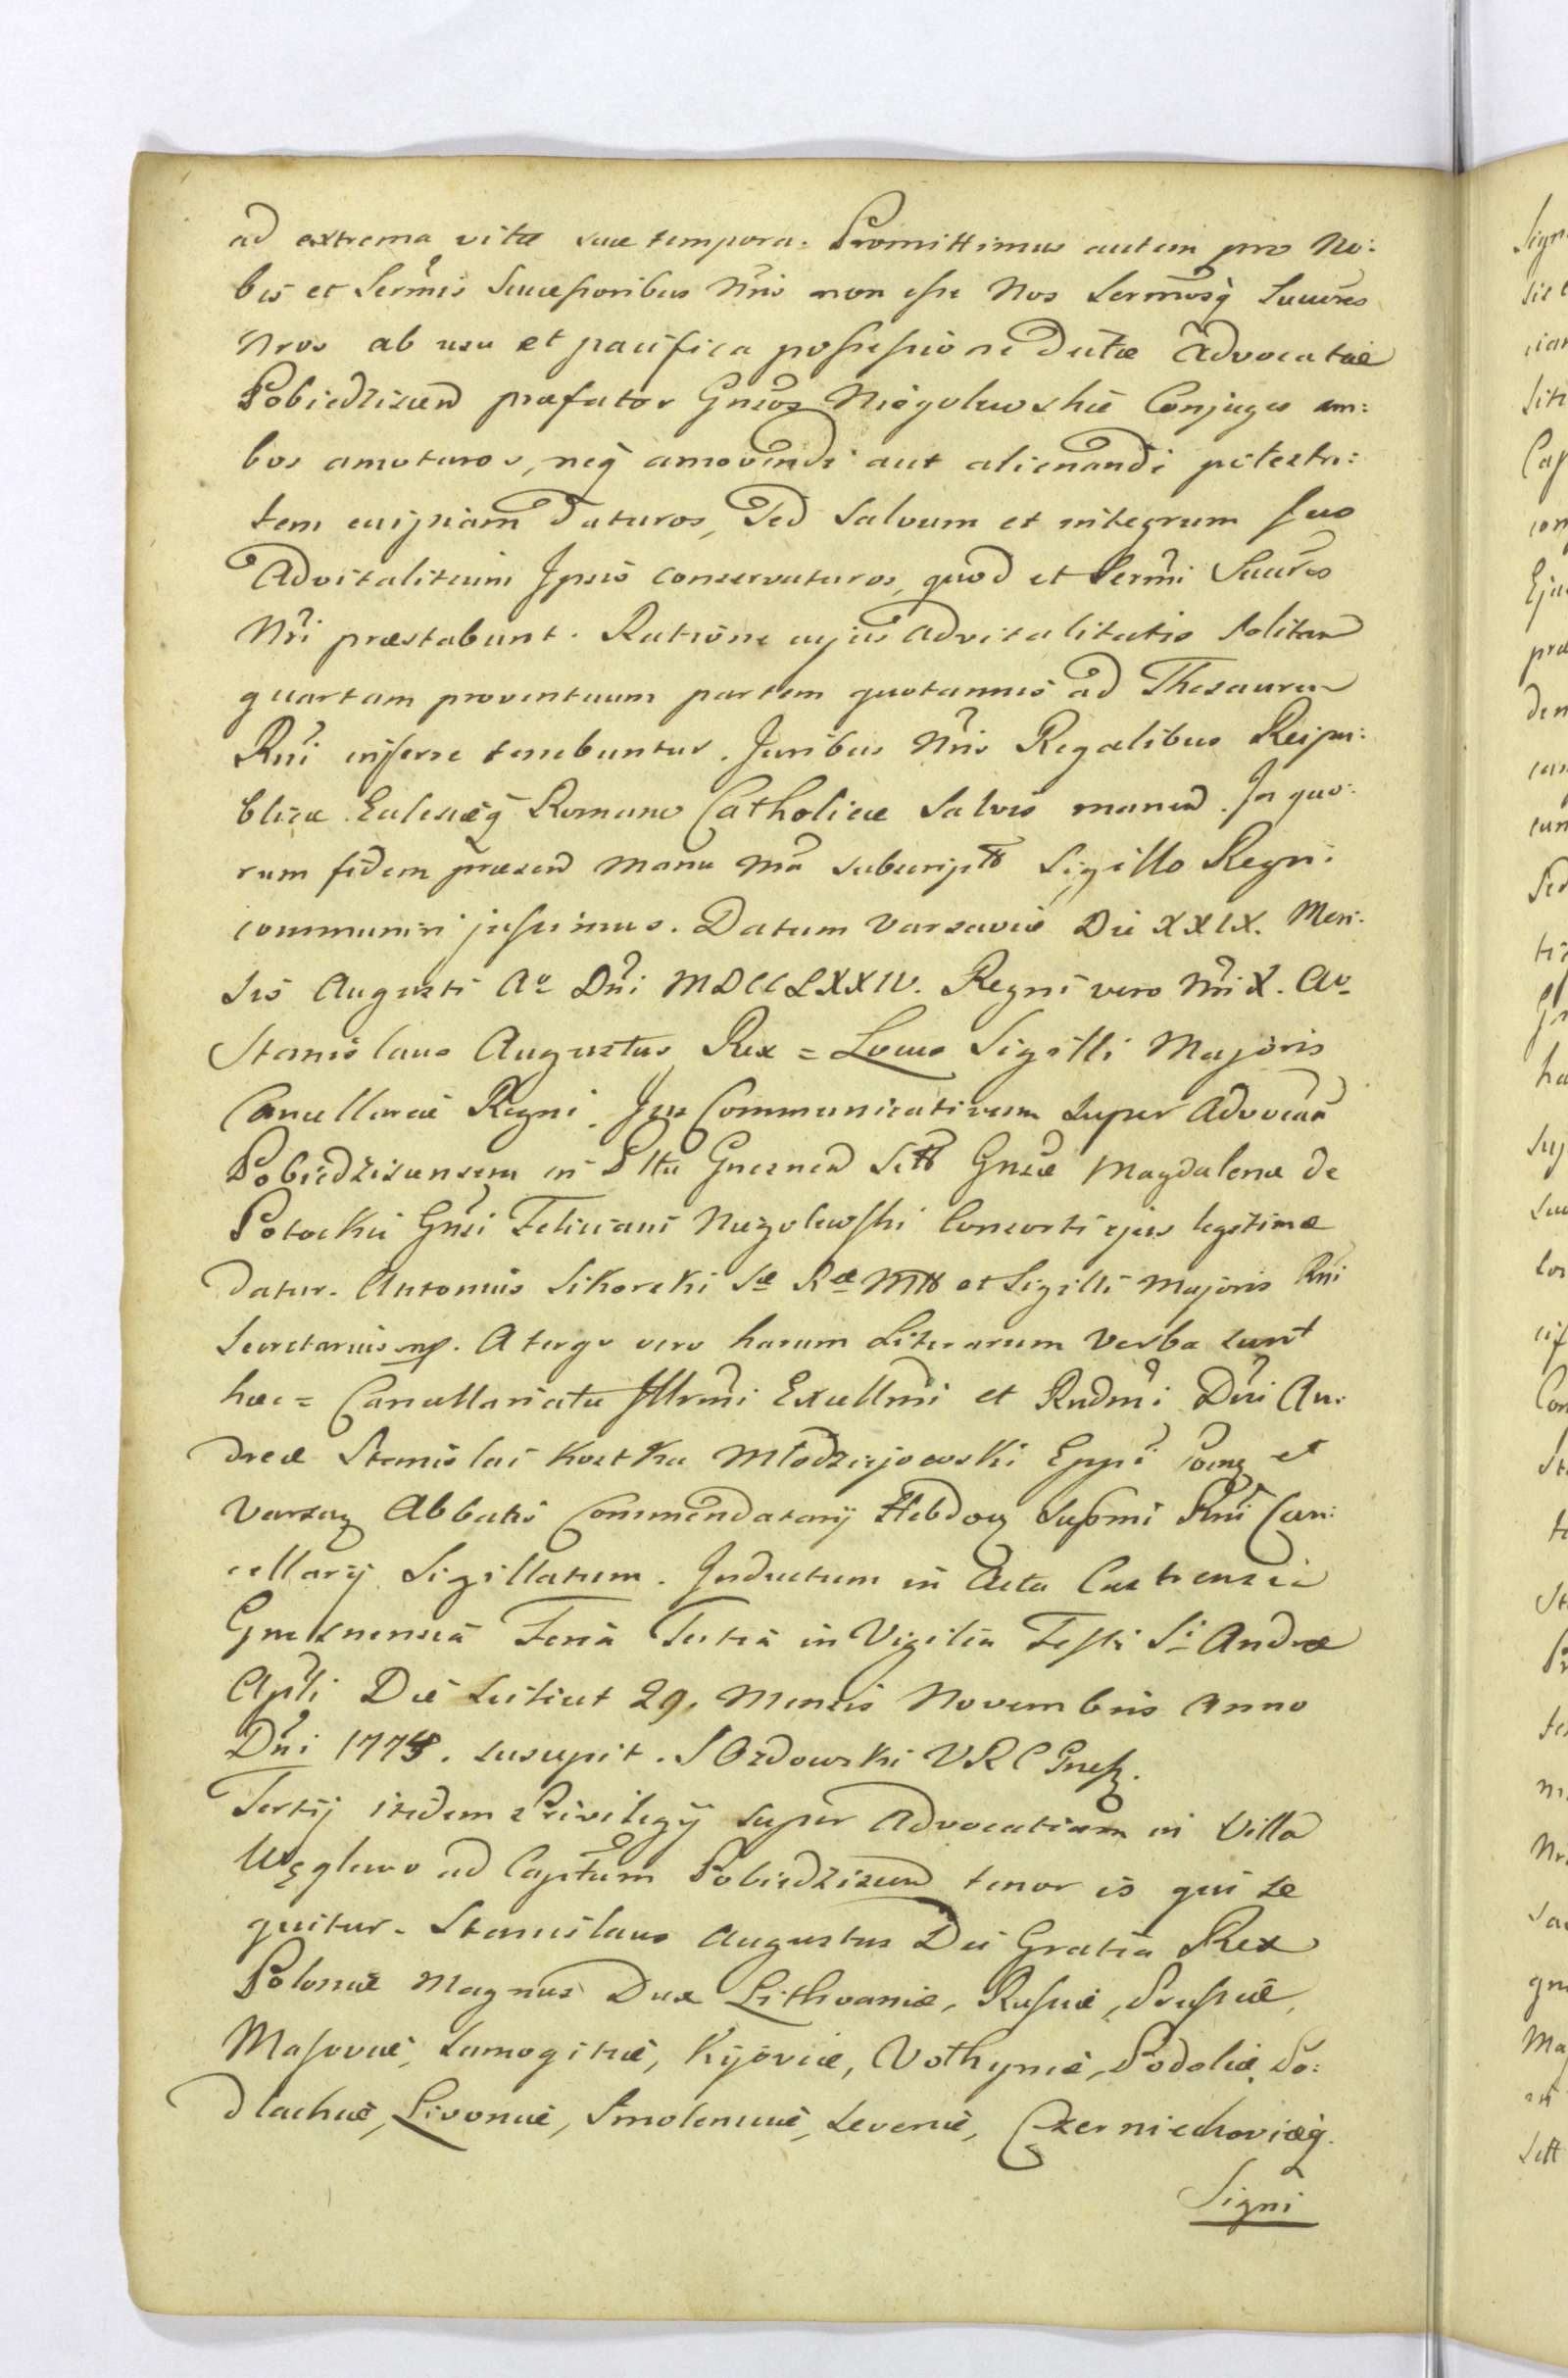 ad extrema vitæ suæ tempora. Promittimus autem pro No:
bis et Sermis Successoribus Nris non esse Nos Sermosq̃ Succres
Nros ab usu et pacifica possessione dictæ Advocatiæ
Pobiedziscen præfatos Gnsos Niegolewskie Conjuges am:
bos amoturos, neq̃ amovendi aut alienandi potesta:
tem cuipiam daturos, Sed salvum et integrum Jus
Advitalitium Ipsis conservaturos, quod et Sermi Succres
Nri præstabunt. Ratione cujus advitalitatis solitam
quartam proventuum partem quotannis ad Thesaurum
Rni inferre tenebuntur. Juribus Nris Regalibus Reipu:
blicæ Eclesiæq̃ Romano Catholicæ Salvis manen. In quo:
rum fidem præsen manu Nra subscriptt Sigillo Regni
communiri jussimus. Datum Varsaviæ Die XXIX. Men:
sis Augusti Ao Dni MDCCLXXIV. Regni vero Nri X. Ao
Stanislaus Augustus Rex = Locus Sigilli Majoris
Cancellariæ Regni. Jus Communicativum super Advocam
Pobiedziscensem in Pttu Gnesnen Sitt Gnsæ Magdalenæ de
Potockie Gnsi Feliciani Niegolewski Consorti ejus legitimæ
datur. Antonius Sikorski Sæ Ræ Mtt et Sigilli Majoris Rni
Secretarius mp. A tergo vero harum Literarum Verba sunt
hæc = Cancellariatu Illrmi Excellmi et Rndmi Dni An:
dreæ Stanislai Kostka Młodziejowski Eppi Posnz et
Varsaz Abbatis Commendatarij Hebdoz Supmi Rni Can:
cellarij Sigillatum. Inductum in Acta Castrensia
Gnesnensia Feria Tertia in Vigilia Festi Si Andreæ
Apli Die scilicet 29. Mensis Novembris Anno
Dni 1774. suscepit. J Ozdowski VRC Gnesz.
Tertij itidem Privilegij super Advocatiam in Villa
Węglewo ad Capitum Pobiedziscen tenor is qui se
quitur. Stanislaus Augustus Dei Gratia Rex
Poloniæ Magnus Dux Lithvaniæ, Russiæ, Prussiæ,
Masoviæ, Samogitiæ, Kijoviæ, Volhyniæ, Podoliæ, Po:
dlachiæ, Livoniæ, Smolensciæ, Severiæ, Czerniechoviæq̃.
Signi